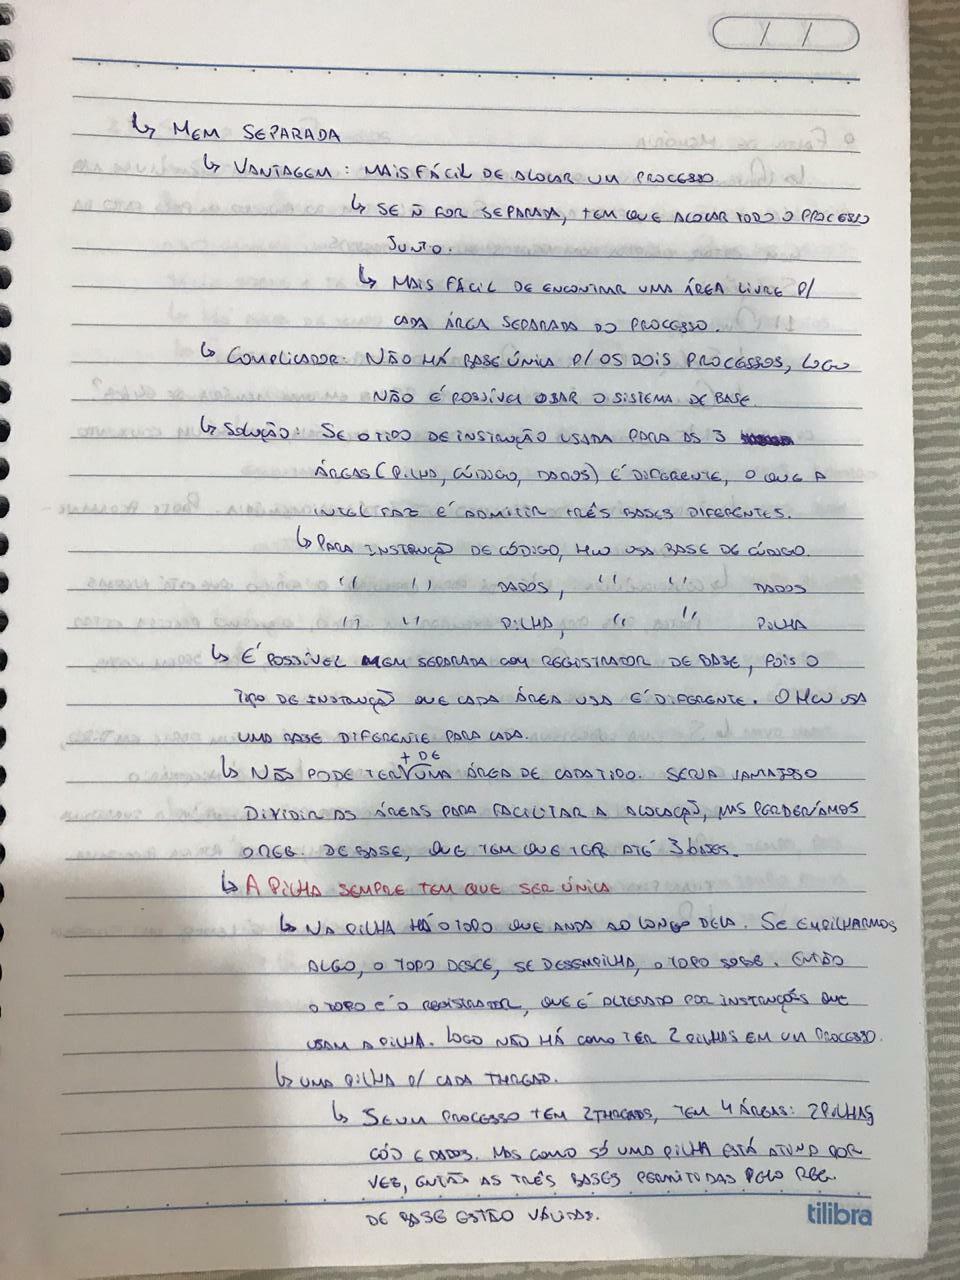 / /
↳ MEM SEPARADA
↳ VANTAGEM: MAIS FÁCIL DE ALOCAR UM PROCESSO
↳ SE Ñ FOR SEPARADA, TEM QUE ALOCAR TODO O PROCESSO
JUNTO.
↳ MAIS FÁCIL DE ENCONTRAR UMA ÁREA LIVRE P/
CADA ÁREA SEPARADA DO PROCESSO.
↳ COMPLICADOR: NÃO HÁ BASE ÚNICA P/ OS DOIS PROCESSOS, LOGO
NÃO É POSSÍVEL USAR O SISTEMA DE BASE.
↳ SOLUÇÃO: SE O TIPO DE INSTRUÇÃO USADA PARA AS 3
ÁREAS (PILHA, CÓDIGO, DADOS) É DIFERENTE, O QUE A
INTEL FAZ É ADMITIR TRÊS BASES DIFERENTES.
↳ PARA INSTRUÇÃO DE CÓDIGO, HW USA BASE DE CÓDIGO.
'' '' DADOS, '' '' DADOS
'' '' PILHA, '' '' PILHA
↳ É POSSÍVEL MEM SEPARADA COM REGISTRADOR DE BASE, POIS O
TIPO DE INSTRUÇÃO QUE CADA ÁREA USA É DIFERENTE. O HW USA
UMA BASE DIFERENTE PARA CADA.
↳ NÃO PODE TER + DE UMA ÁREA DE CADA TIPO. SERIA VANTAJOSO
DIVIDIR AS ÁREAS PARA FACILITAR A ALOCAÇÃO, MAS PERDERÍAMOS
O REG. DE BASE, QUE TEM QUE TER ATÉ 3 BASES.
↳ A PILHA SEMPRE TEM QUE SER ÚNICA
↳ NA PILHA HÁ O TOPO QUE ANDA AO LONGO DELA. SE EMPILHARMOS
ALGO, O TOPO DESCE, SE DESEMPILHA, O TOPO SOBE. ENTÃO
O TOPO É O REGISTRADOR, QUE É ALTERADO POR INSTRUÇÕES QUE
USAM A PILHA. LOGO NÃO HÁ COMO TER 2 PILHAS EM UM PROCESSO.
↳ UMA PILHA P/ CADA THREAD.
↳ SE UM PROCESSO TEM 2 THREADS, TEM 4 ÁREAS: 2 PILHAS,
CÓD E DADOS. MAS COMO SÓ UMA PILHA ESTÁ ATIVA POR
VEZ, ENTÃO AS TRÊS BASES PERMITIDAS PELO REG.
DE BASE ESTÃO VÁLIDAS.
tilibra